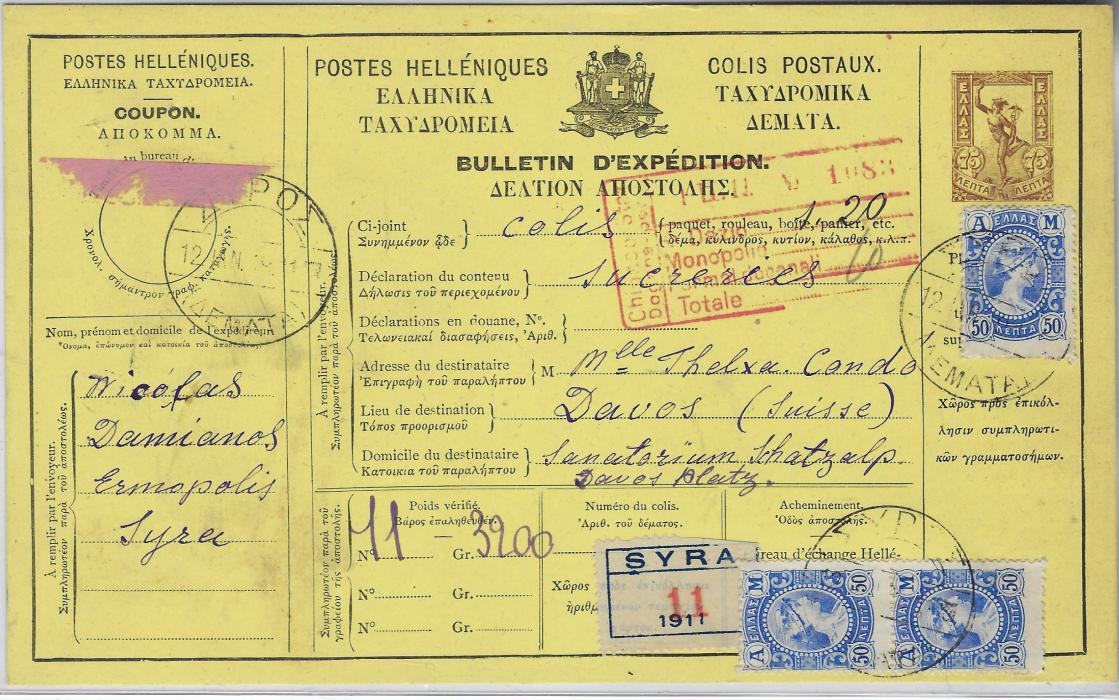 POSTES HELLÉNIQUES.
ΕΛΛΗΝΙΚΑ ΤΑΧΥΔΡΟΜΕΙΑ.
COUPON.
ΑΠΟΚΟΜΜΑ.
au bureau d
Χρονολ. σήμαντρον γραφ. καταγωγῆς.
ΣΥΡΟΣ
12 ΙΑΝ. 11
(ΔΕΜΑΤΑ)
Nom, prénom et domicile de l'expéditeur.
Ὄνομα, ἐπώνυμον καὶ κατοικία τοῦ ἀποστολέως.
A remplir par l'envoyeur.
Συμπληρωτέον παρὰ τοῦ ἀποστολέως.
Nicolas
Damianos
Ermopolis
Syra
POSTES HELLÉNIQUES
ΕΛΛΗΝΙΚΑ
ΤΑΧΥΔΡΟΜΕΙΑ
COLIS POSTAUX.
ΤΑΧΥΔΡΟΜΙΚΑ
ΔΕΜΑΤΑ.
BULLETIN D'EXPÉDITION.
ΔΕΛΤΙΟΝ ΑΠΟΣΤΟΛΗΣ.
A remplir par l'envoyeur.
Συμπληρωτέον παρὰ τοῦ ἀποστολέως
Ci-joint
Συνημμένον ὧδε
colis
paquet, rouleau, boîte, panier, etc.
δέμα, κύλινδρος, κυτίον, κάλαθος, κ.λ.π.
1,20
Déclaration du contenu
Δήλωσις τοῦ περιεχομένου
sucreries
10
Déclarations en douane, Nº.
Τελωνειακαὶ διασαφήσεις, Ἀριθ.
Adresse du destinataire
Ἐπιγραφὴ τοῦ παραλήπτου
M
Mlle Thelxa. Condo
Lieu de destination
Τόπος προορισμοῦ
Davos (Suisse)
Domicile du destinataire
Κατοικία τοῦ παραλήπτου
Sanatorium Shatzalp
Davos Platz.
1083
Dazio
Monopolio
Totale
Συμπληρωτέον παρὰ τοῦ
γραφείου τῆς ἀποστολῆς.
Poids vérifié.
Βάρος ἐπαληθευθέν.
Nº 11 Gr. 3200
Nº Gr.
Nº Gr.
Numéro du colis.
Ἀριθ. τοῦ δέματος.
Acheminement.
Ὁδὸς ἀποστολῆς.
reau d'échange Hellé-
Χῶρος
ἀριθμ
SYRA
11
1911
ΕΛΛΑΣ
ΕΛΛΑΣ
75 75
ΛΕΠΤΑ ΛΕΠΤΑ
Α ΕΛΛΑΣ Μ
50 ΛΕΠΤΑ 50
ΔΕΜΑΤΑ
Χῶρος πρὸς ἐπικόλ-
λησιν συμπληρωτι-
κῶν γραμματοσήμων.
Α ΕΛΛΑΣ Μ
50 ΛΕΠΤΑ 50
Α ΕΛΛΑΣ Μ
50 ΛΕΠΤΑ 50